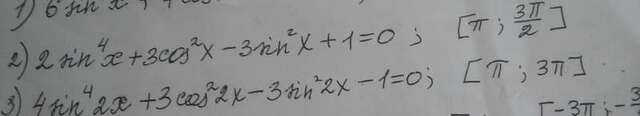 1) 6 sin x
2) 2 sin⁴x + 3cos²x − 3sin²x + 1 = 0 ; [π ; 3π/2]
3) 4 sin⁴2x + 3cos²2x − 3sin²2x − 1 = 0; [π ; 3π]
[−3π; −3